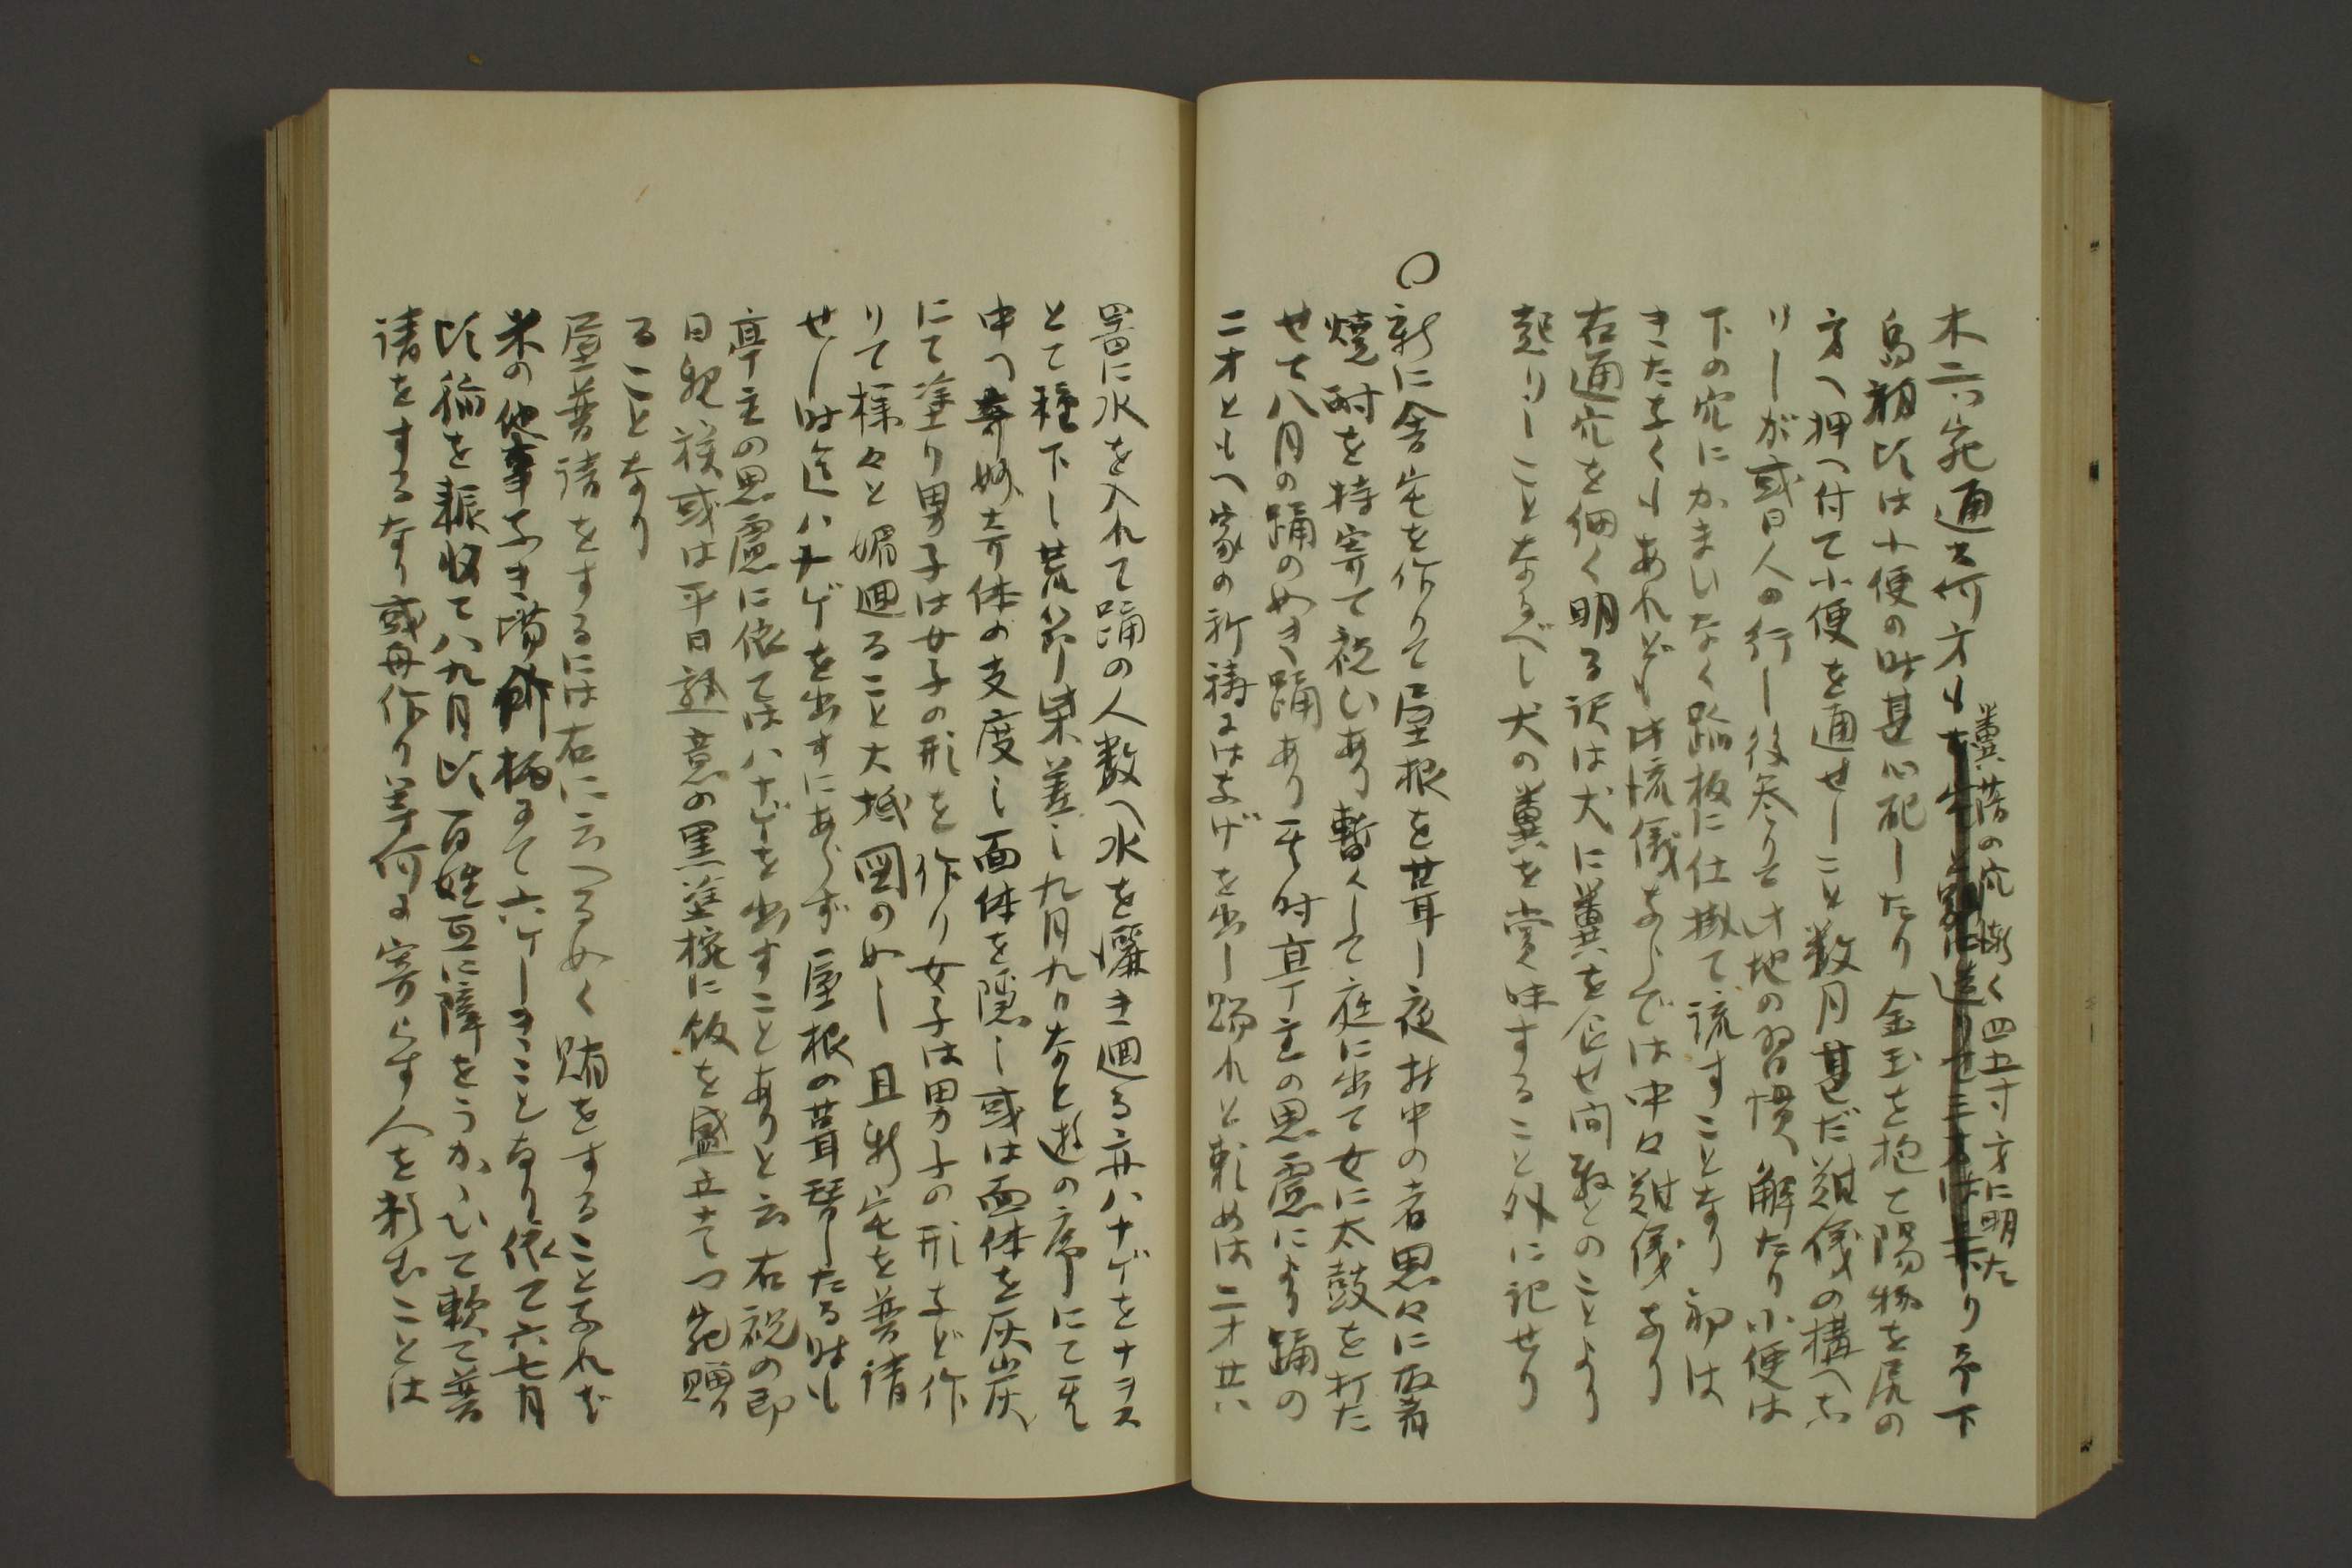 木二六宛通去何方も糞落の穴漸く四五寸方に明たり予下
島初比は小便の時甚心配したり金玉を抱て陽物を尻の
方へ押へ付て小便を通せしこと数月甚だ難儀の構へな
りしが或日人の行し後参りて此地の習慣解たり小便は
下の穴にかまいなく踏板に仕掛て流すことなり初は
きたなくもあれども此流儀ならでは中々難儀なり
右通穴を細く明る訳は犬に糞を食せ間敷とのことより
起りしことなるべし犬の糞を賞味すること外に記せり
〇新に舎宅を作りて屋根を葺し夜村中の者思々に取肴
焼酎を持寄て祝いあり暫くして庭に出て女に太鼓を打た
せて八月の踊のめき踊あり其時亭主の思慮により踊の
二才ともへ家の祈祷にはなげを出し踊れと頼めは二才共ハ
器に水を入れて踊の人数へ水を灑き廻る并ハナゲをナヲス
とて種下し荒節柴差し九月九日なと遊の序にて其
中へ奇妙奇体の支度し面体を隠し或は面体を灰炭
にて塗り男子は女子の形を作り女子は男子の形など作
りて様々と媚廻ること大抵図のめし且新宅を普請
せし時迄ハナゲを出すにあらず屋根の葺替したる時も
亭主の思慮に依てはハナゲを出すことありと云右祝の即
日親族或は平日懇意の黒塗椀に飯を盛立て一つ宛贈
ることなり
屋普請をするには右に云へるめく賄をすることなれば
米の他事なき場所柄にて六ケしきことなり依て六七月
比稲を賑収て八九月比百姓互に障をうかゝひて軟て普
請をするなり或舟作り等何に寄らす人を頼むことは